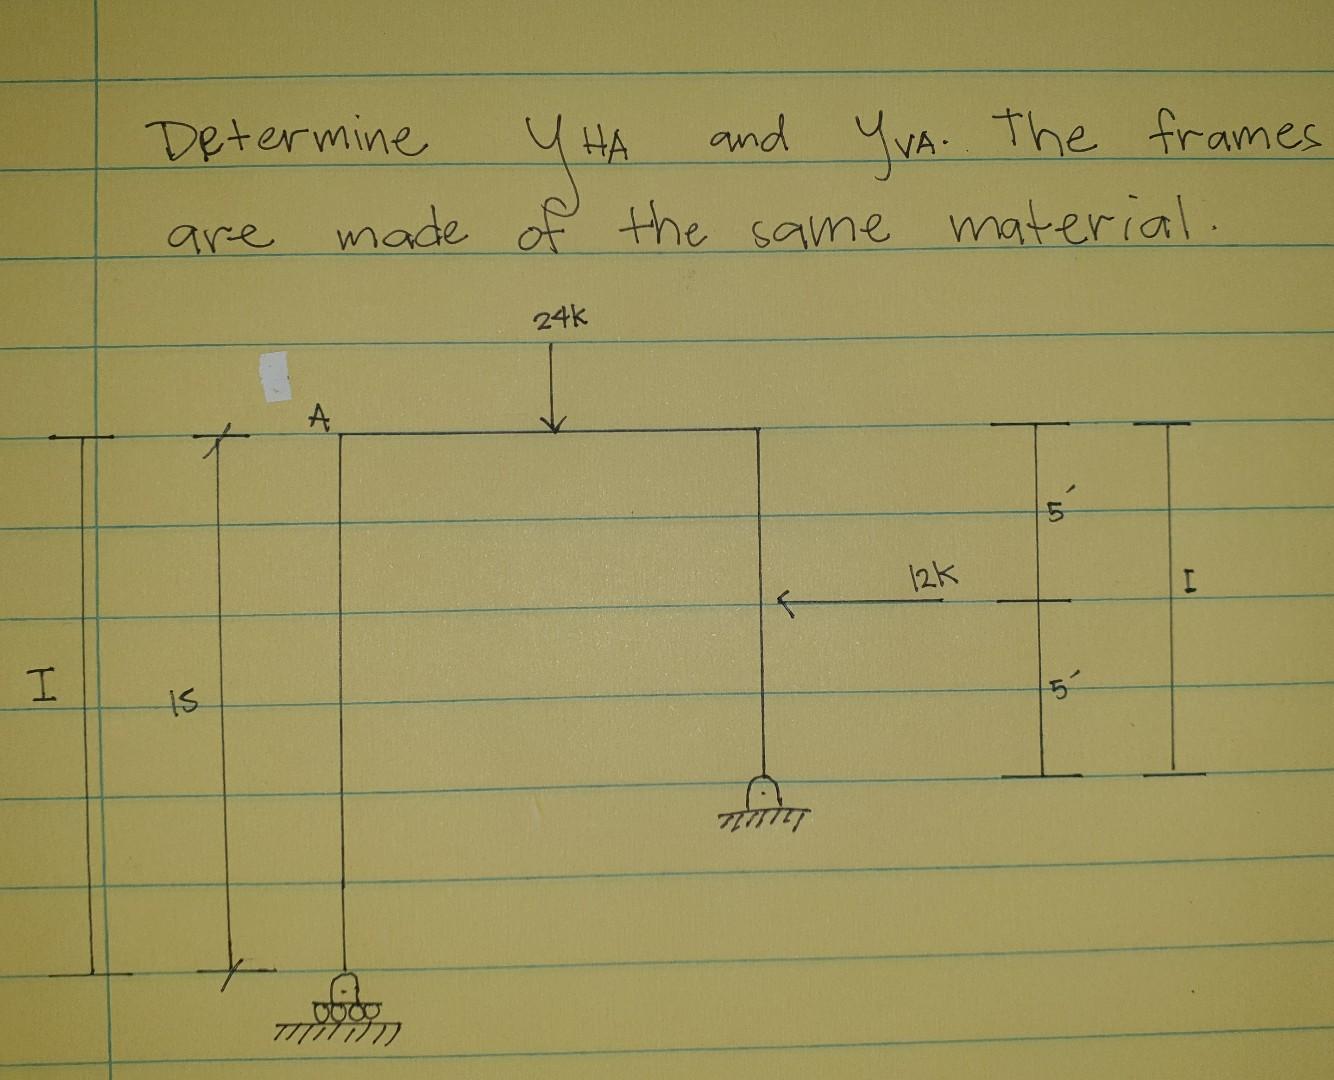 Determine yHA and yVA. The frames
are made of the same material.
24K
A
5'
12K
I
I
15
5'